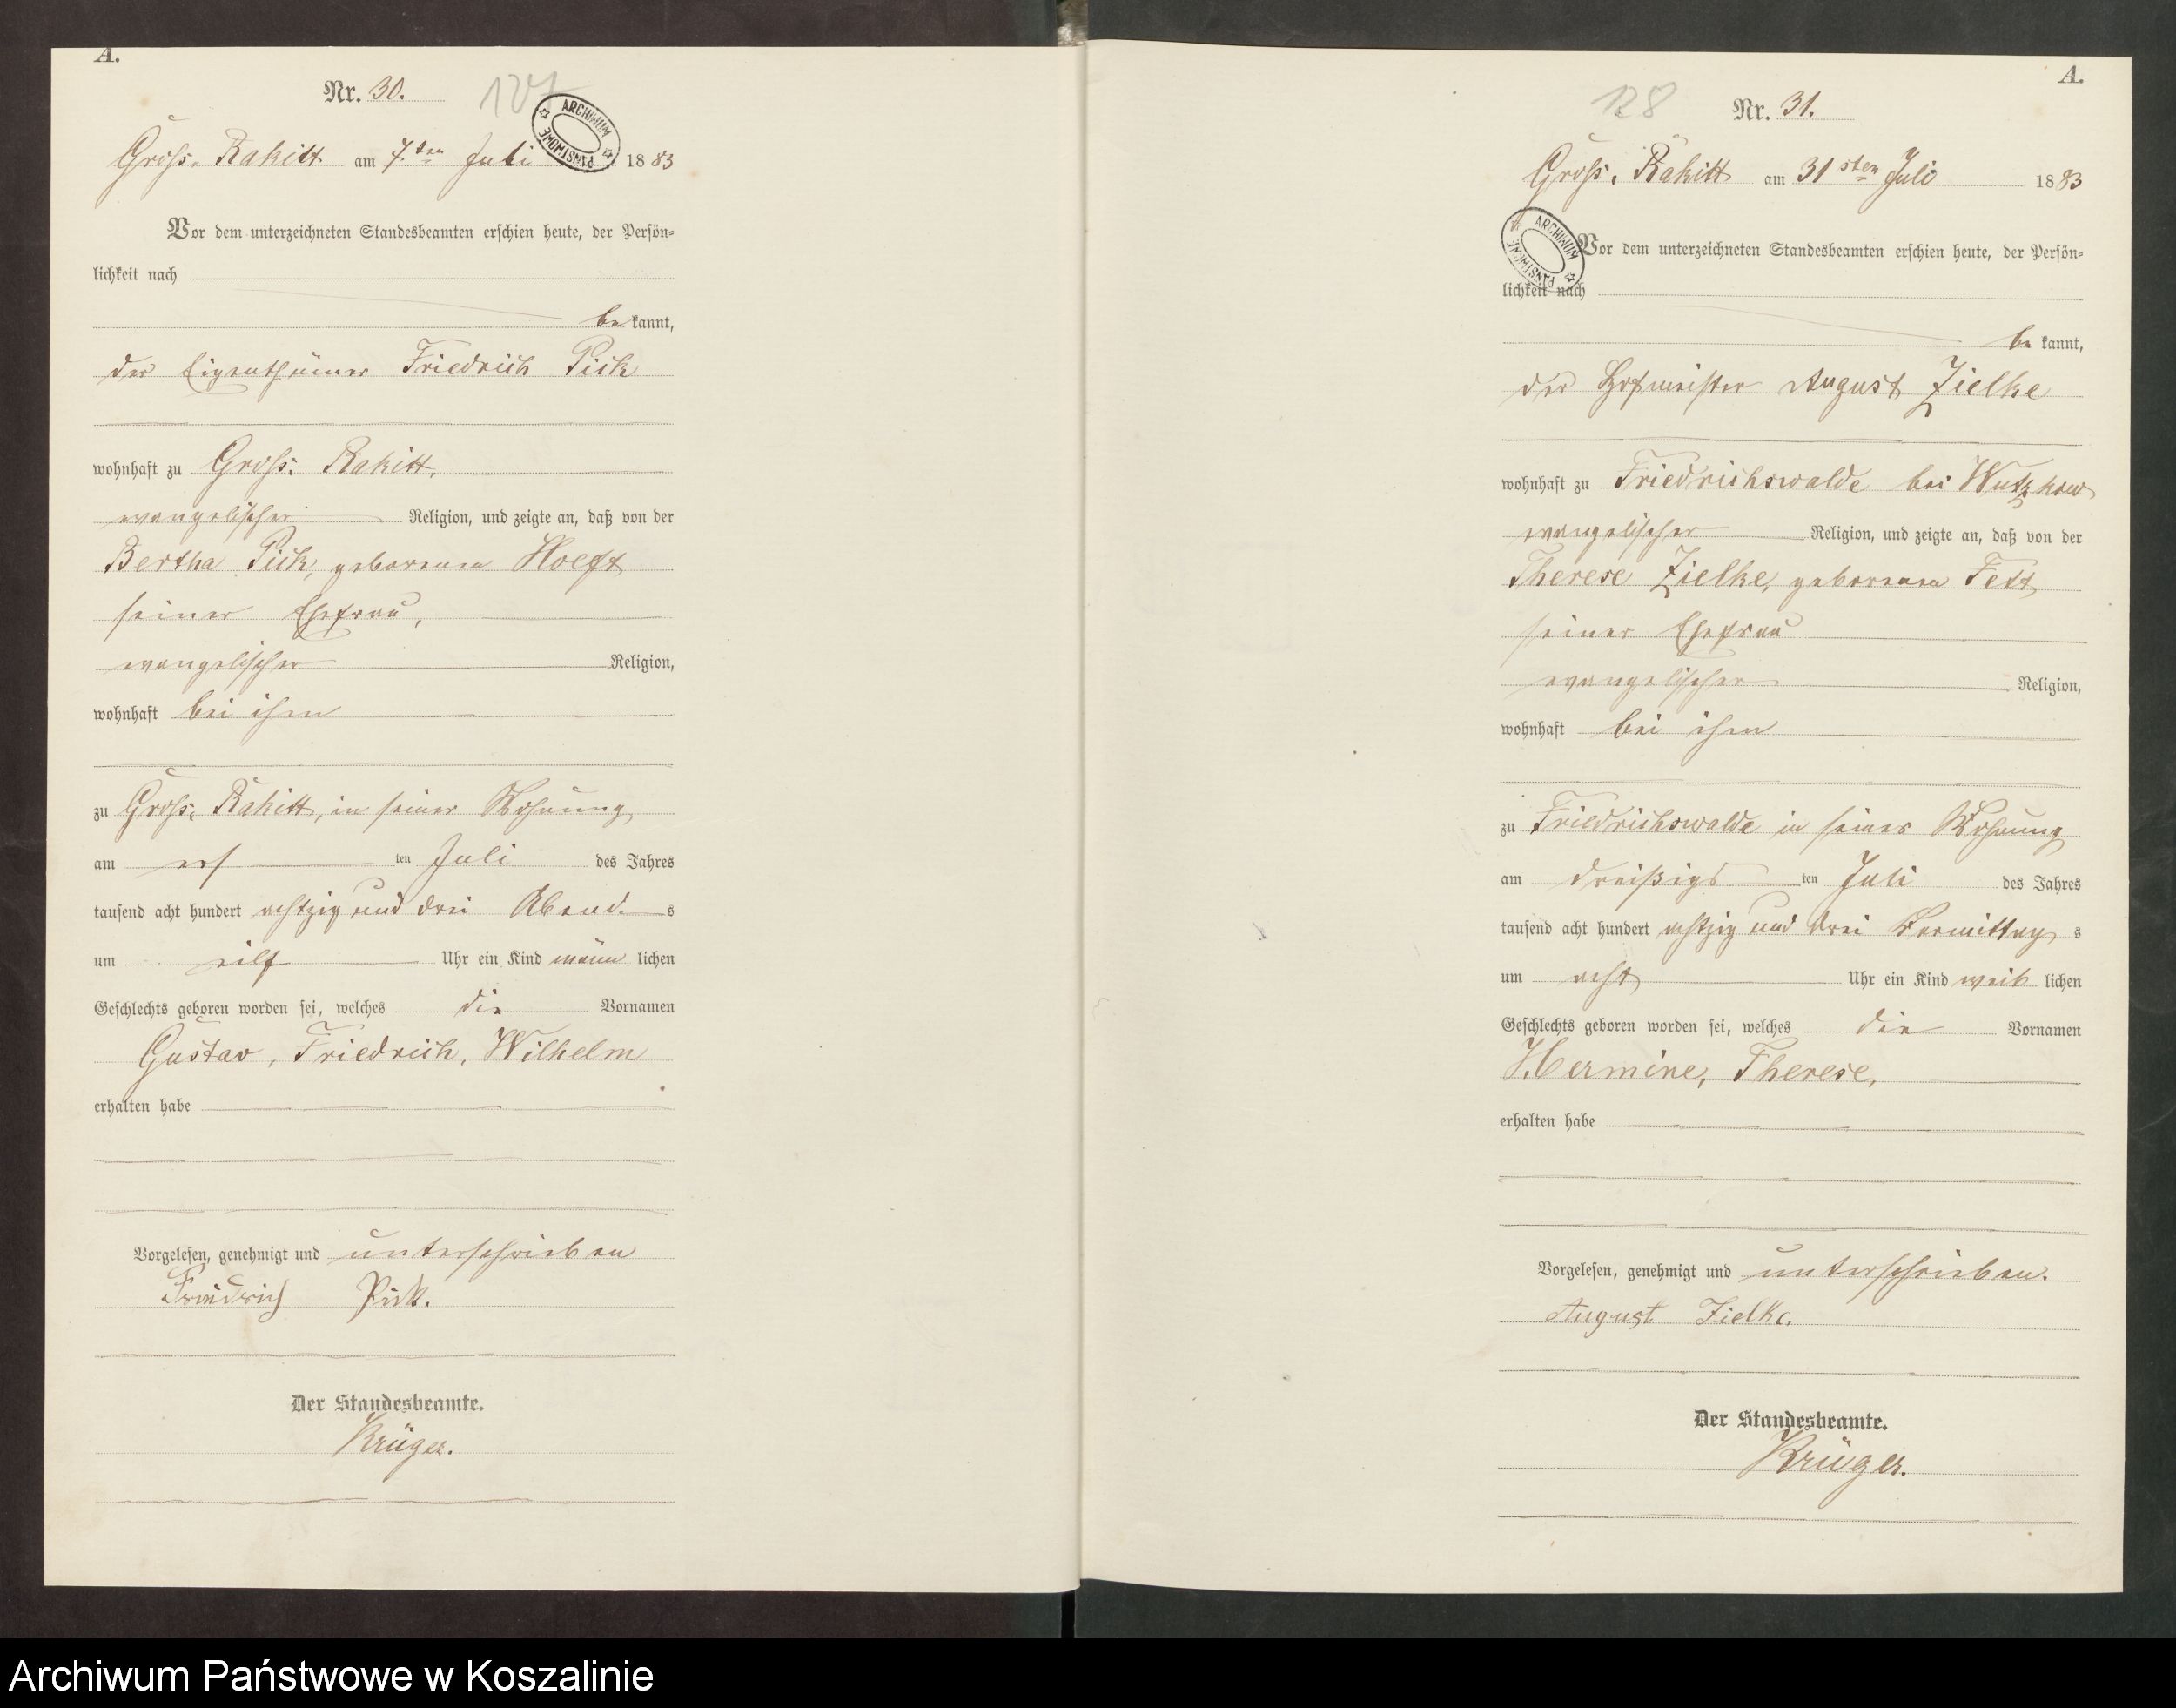 A.
Nr. 30.
127
ARCHIWUM PAŃSTWOWE
Groß. Rakitt am 7ten Juli 1883
Vor dem unterzeichneten Standesbeamten erschien heute, der Persön-
lichkeit nach
bekannt,
der Eigenthümer Friedrich Pick
wohnhaft zu Groß. Rakitt,
evangelischer Religion, und zeigte an, daß von der
Bertha Pick, geborenen Hoeft
seiner Ehefrau,
evangelischer Religion,
wohnhaft bei ihm
zu Groß. Rakitt, in seiner Wohnung
am ersten Juli des Jahres
tausend acht hundert achtzig und drei Abends
um eilf Uhr ein Kind männlichen
Geschlechts geboren worden sei, welches die Vornamen
Gustav, Friedrich, Wilhelm
erhalten habe
Vorgelesen, genehmigt und unterschrieben
Friedrich Pick.
Der Standesbeamte.
Krüger.
A.
128
Nr. 31.
Groß. Rakitt am 31sten Juli 1883
ARCHIWUM PAŃSTWOWE
Vor dem unterzeichneten Standesbeamten erschien heute, der Persön-
lichkeit nach
bekannt,
der Hofmeister August Zielke
wohnhaft zu Friedrichswalde bei Wutzkow
evangelischer Religion, und zeigte an, daß von der
Therese Zielke, geborenen Fett
seiner Ehefrau
evangelischer Religion,
wohnhaft bei ihm
zu Friedrichswalde in seiner Wohnung
am dreißigsten Juli des Jahres
tausend acht hundert achtzig und drei Vormittags
um acht Uhr ein Kind weiblichen
Geschlechts geboren worden sei, welches die Vornamen
Hermine, Therese,
erhalten habe
Vorgelesen, genehmigt und unterschrieben.
August Zielke.
Der Standesbeamte.
Krüger.
Archiwum Państwowe w Koszalinie